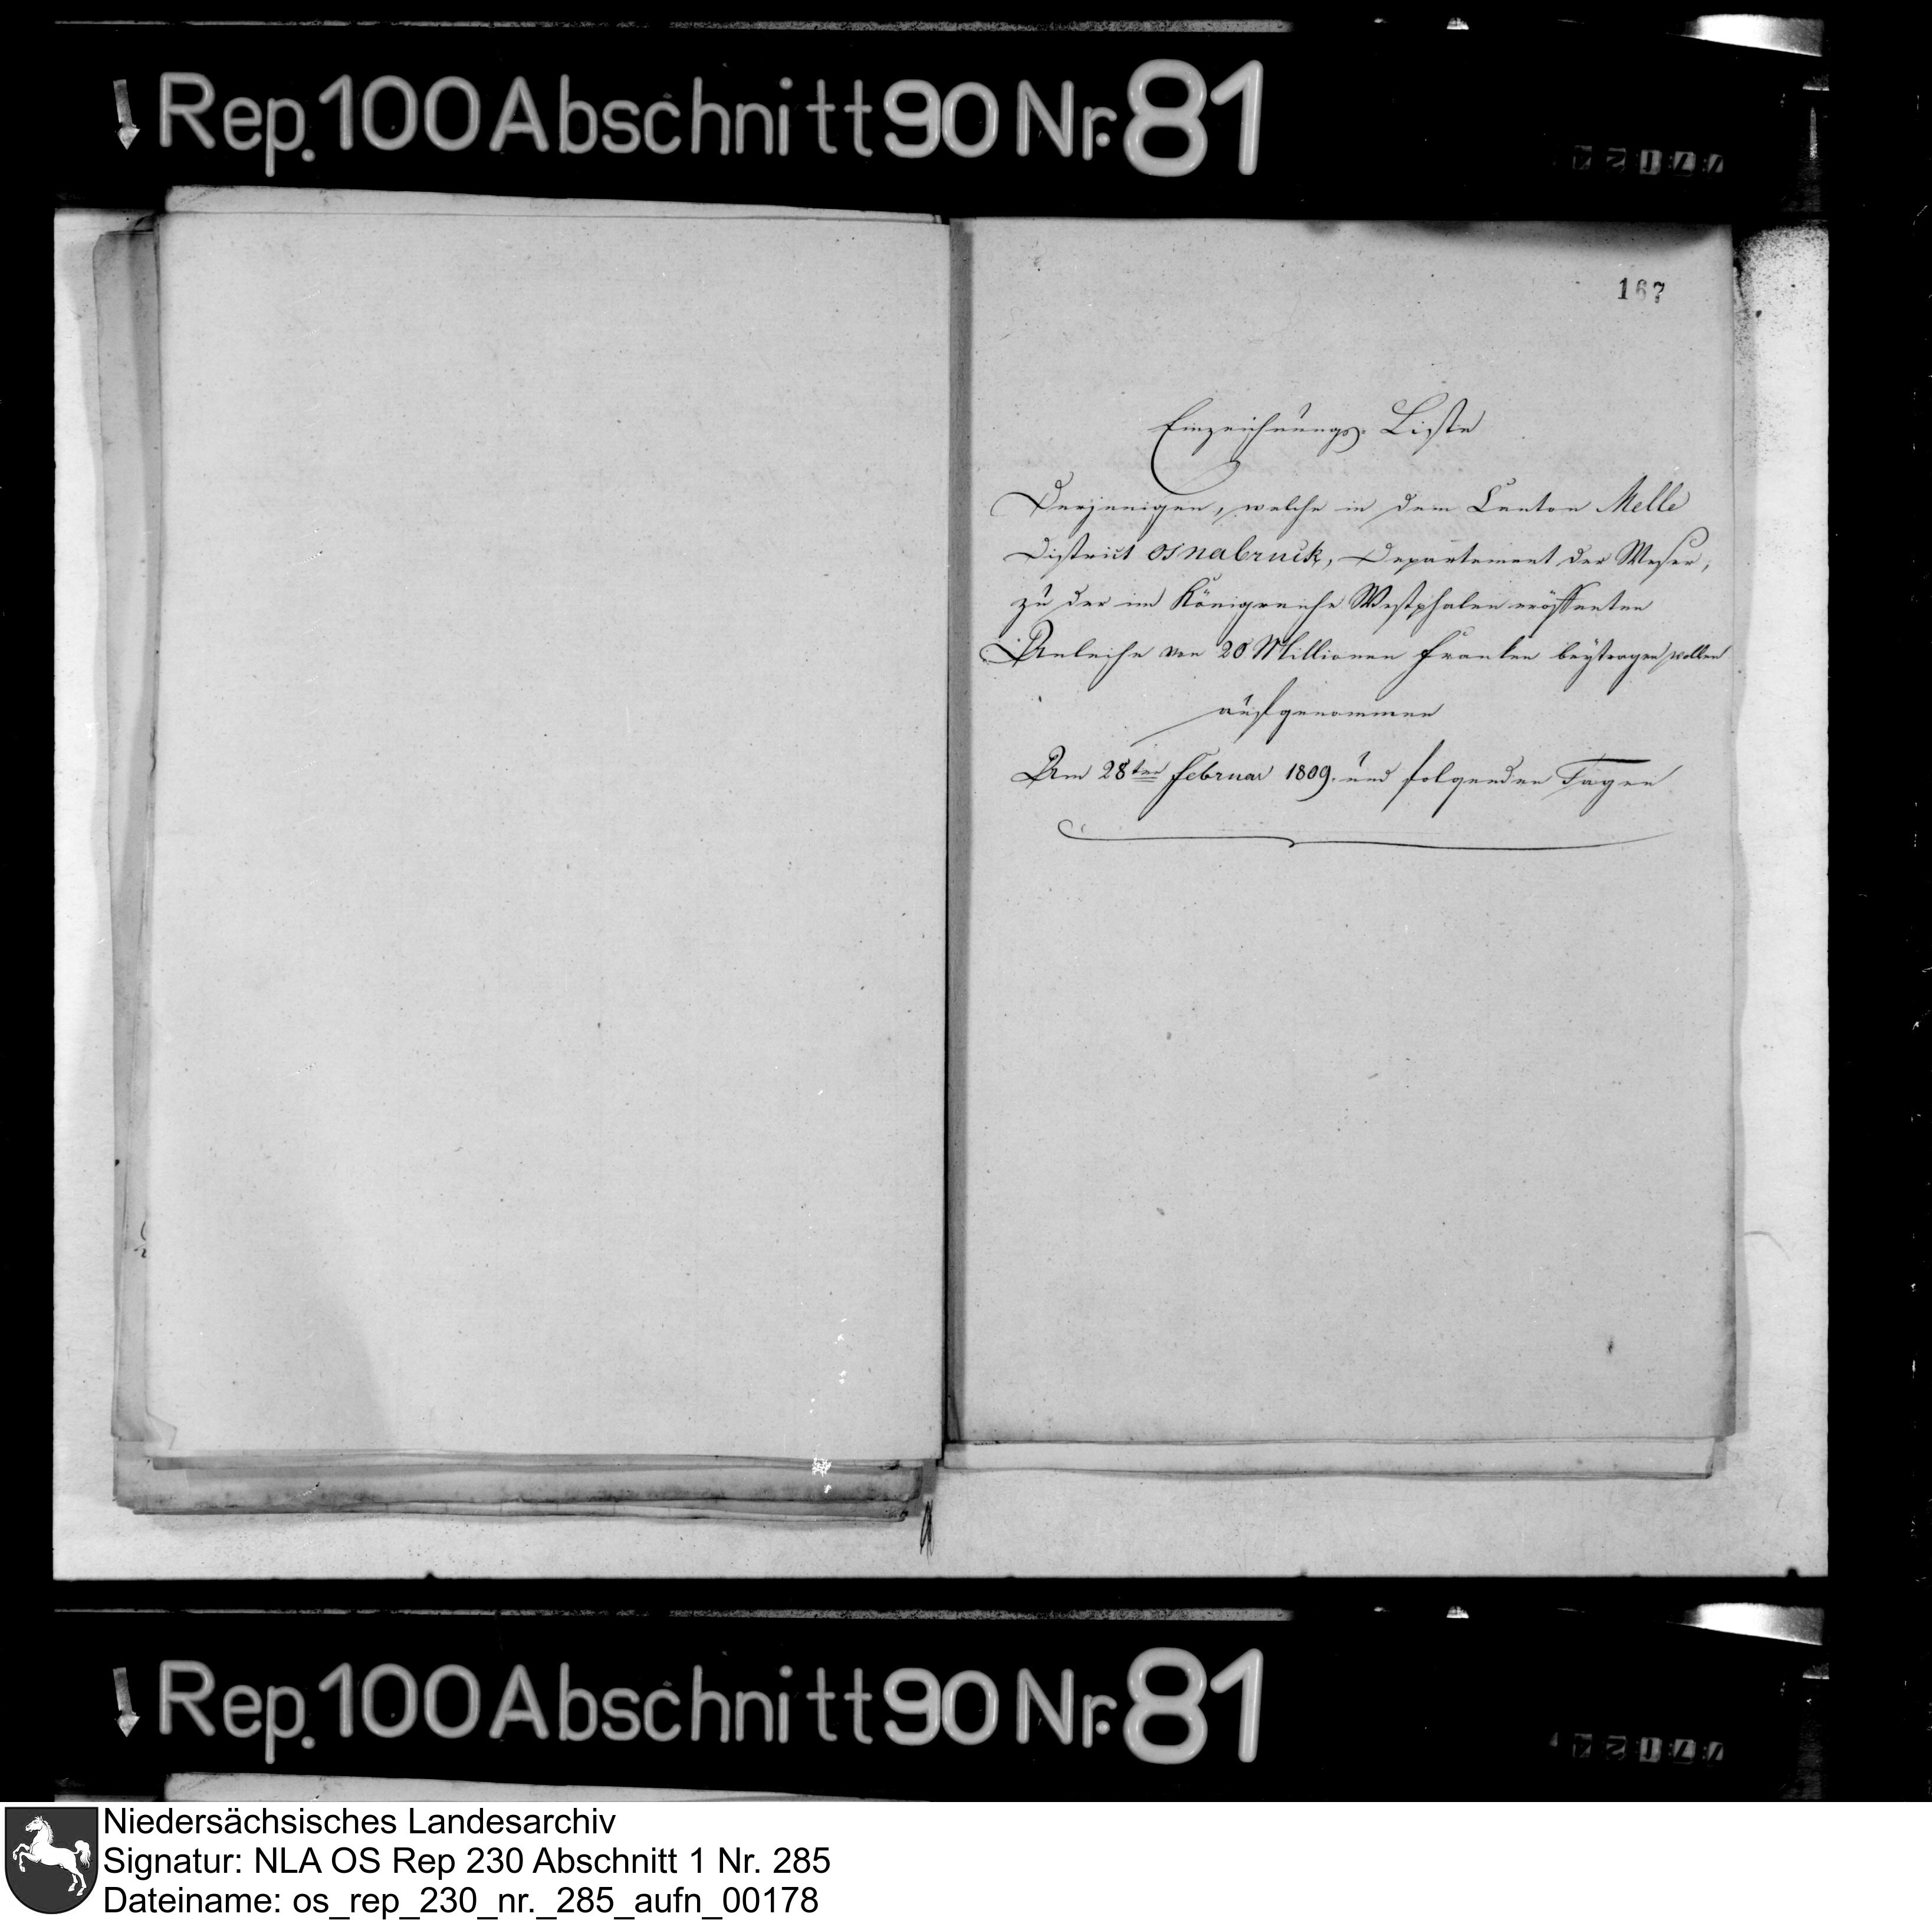 Rep. 100 Abschnitt 90 Nr. 81
167
Einzeichnungs-Liste
Derjenigen, welche in dem Canton Melle
District Osnabruck, Departement der Weser,
zu der im Königreiche Westphalen eröffneten
Anleihe von 20 Millionen Franken beytragen wollen
aufgenommen
Am 28ten Februar 1809. und folgenden Tagen
Rep. 100 Abschnitt 90 Nr. 81
Niedersächsisches Landesarchiv
Signatur: NLA OS Rep 230 Abschnitt 1 Nr. 285
Dateiname: os_rep_230_nr._285_aufn_00178